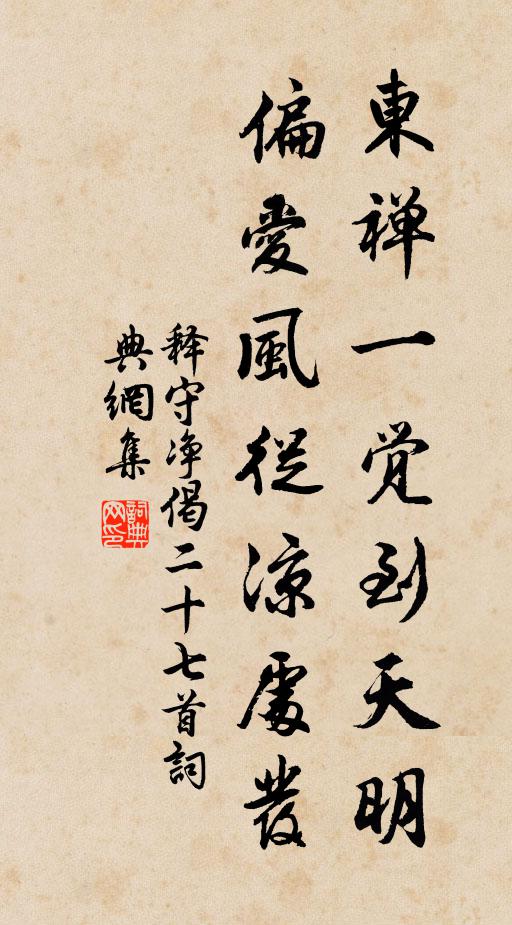 東禅一覺到天明
偏愛風從涼處發
释守净偈二十七首詞
典網集
詞典
网印